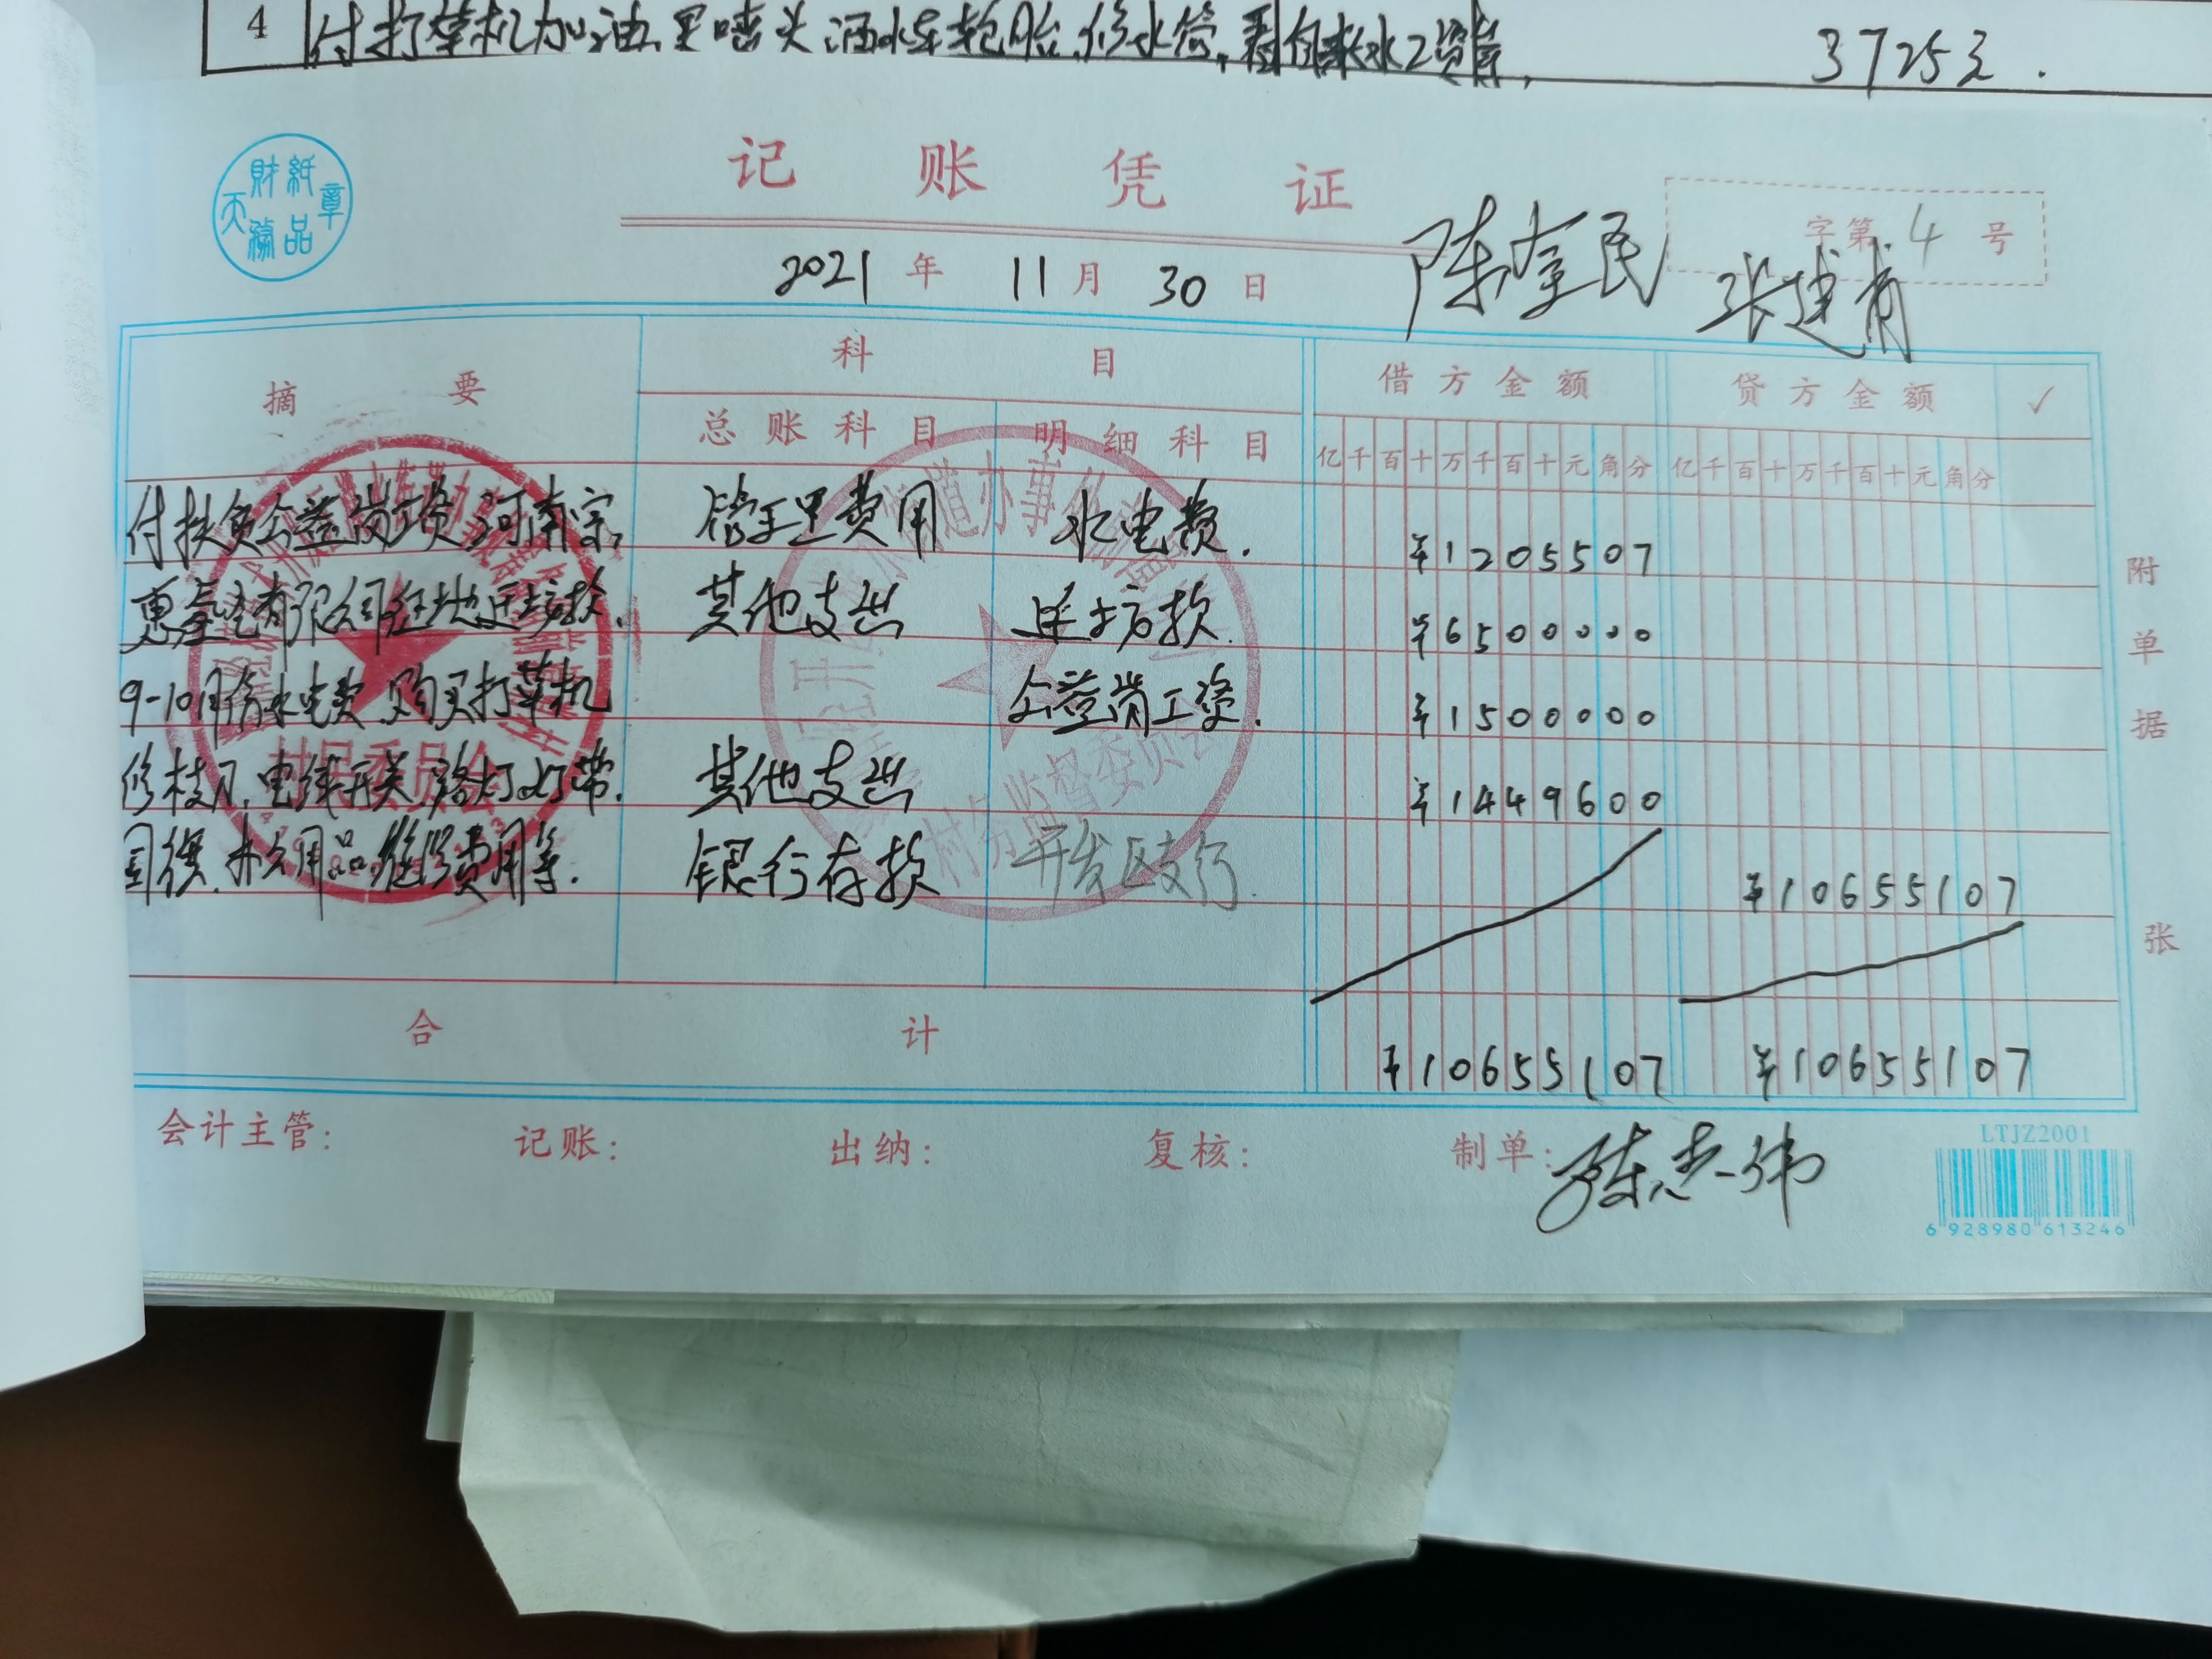 4 付打草机加油、 洒水车轮胎、修水管, 自来水工资等, 37253.
财纸
天 章
务品
记账凭证
字第 4 号
2021年11月30日
摘要 科目 借方金额 贷方金额 ✓
总账科目 明细科目
亿千百十万千百十元角分 亿千百十万千百十元角分
付扶贫公益岗工资 河南宗 管理费用 水电费. ¥1205507
惠 有限公司 地 款. 其他支出 款. ¥6500000
9-10月份水电费 购买打草机 公益岗工资. ¥1500000
修枝刀、电线开关、路灯灯带. 其他支出 ¥1449600
国 . 办公用品、维修费用等. 银行存款 开发区支行. ¥10655107
合计 ¥10655107 ¥10655107
附单据 张
会计主管: 记账: 出纳: 复核: 制单: 陈志伟
村民委员会
村务监督委员会
LTJZ2001
6 928980 613246